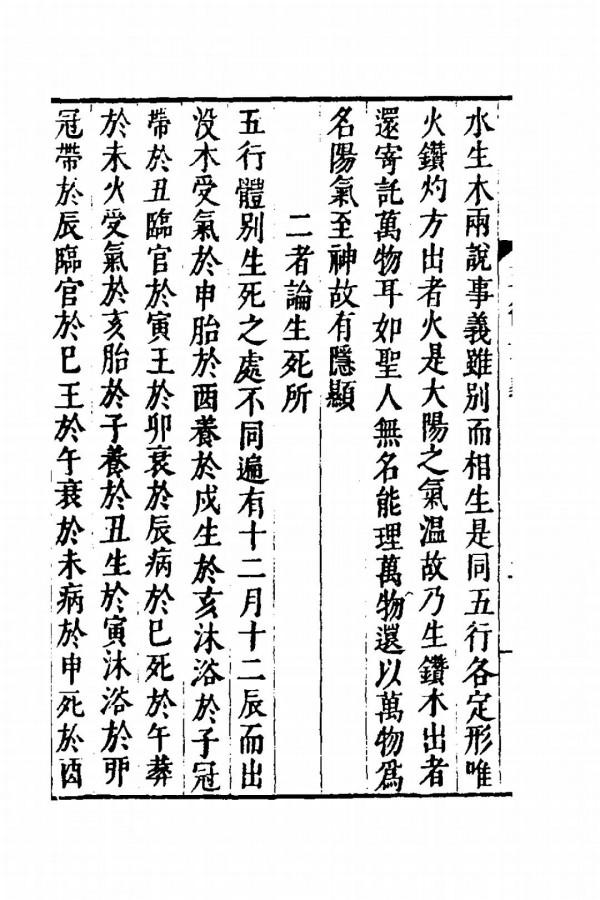 水生木兩說事義雖別而相生是同五行各定形唯
火鑽灼方出者火是大陽之氣温故乃生鑽木出者
還寄託萬物耳如聖人無名能理萬物還以萬物爲
名陽氣至神故有隱顯
二者論生死所
五行體別生死之處不同遍有十二月十二辰而出
没木受氣於申胎於酉養於戌生於亥沐浴於子冠
帶於丑臨官於寅王於卯衰於辰病於巳死於午葬
於未火受氣於亥胎於子養於丑生於寅沐浴於卯
冠帶於辰臨官於巳王於午衰於未病於申死於酉